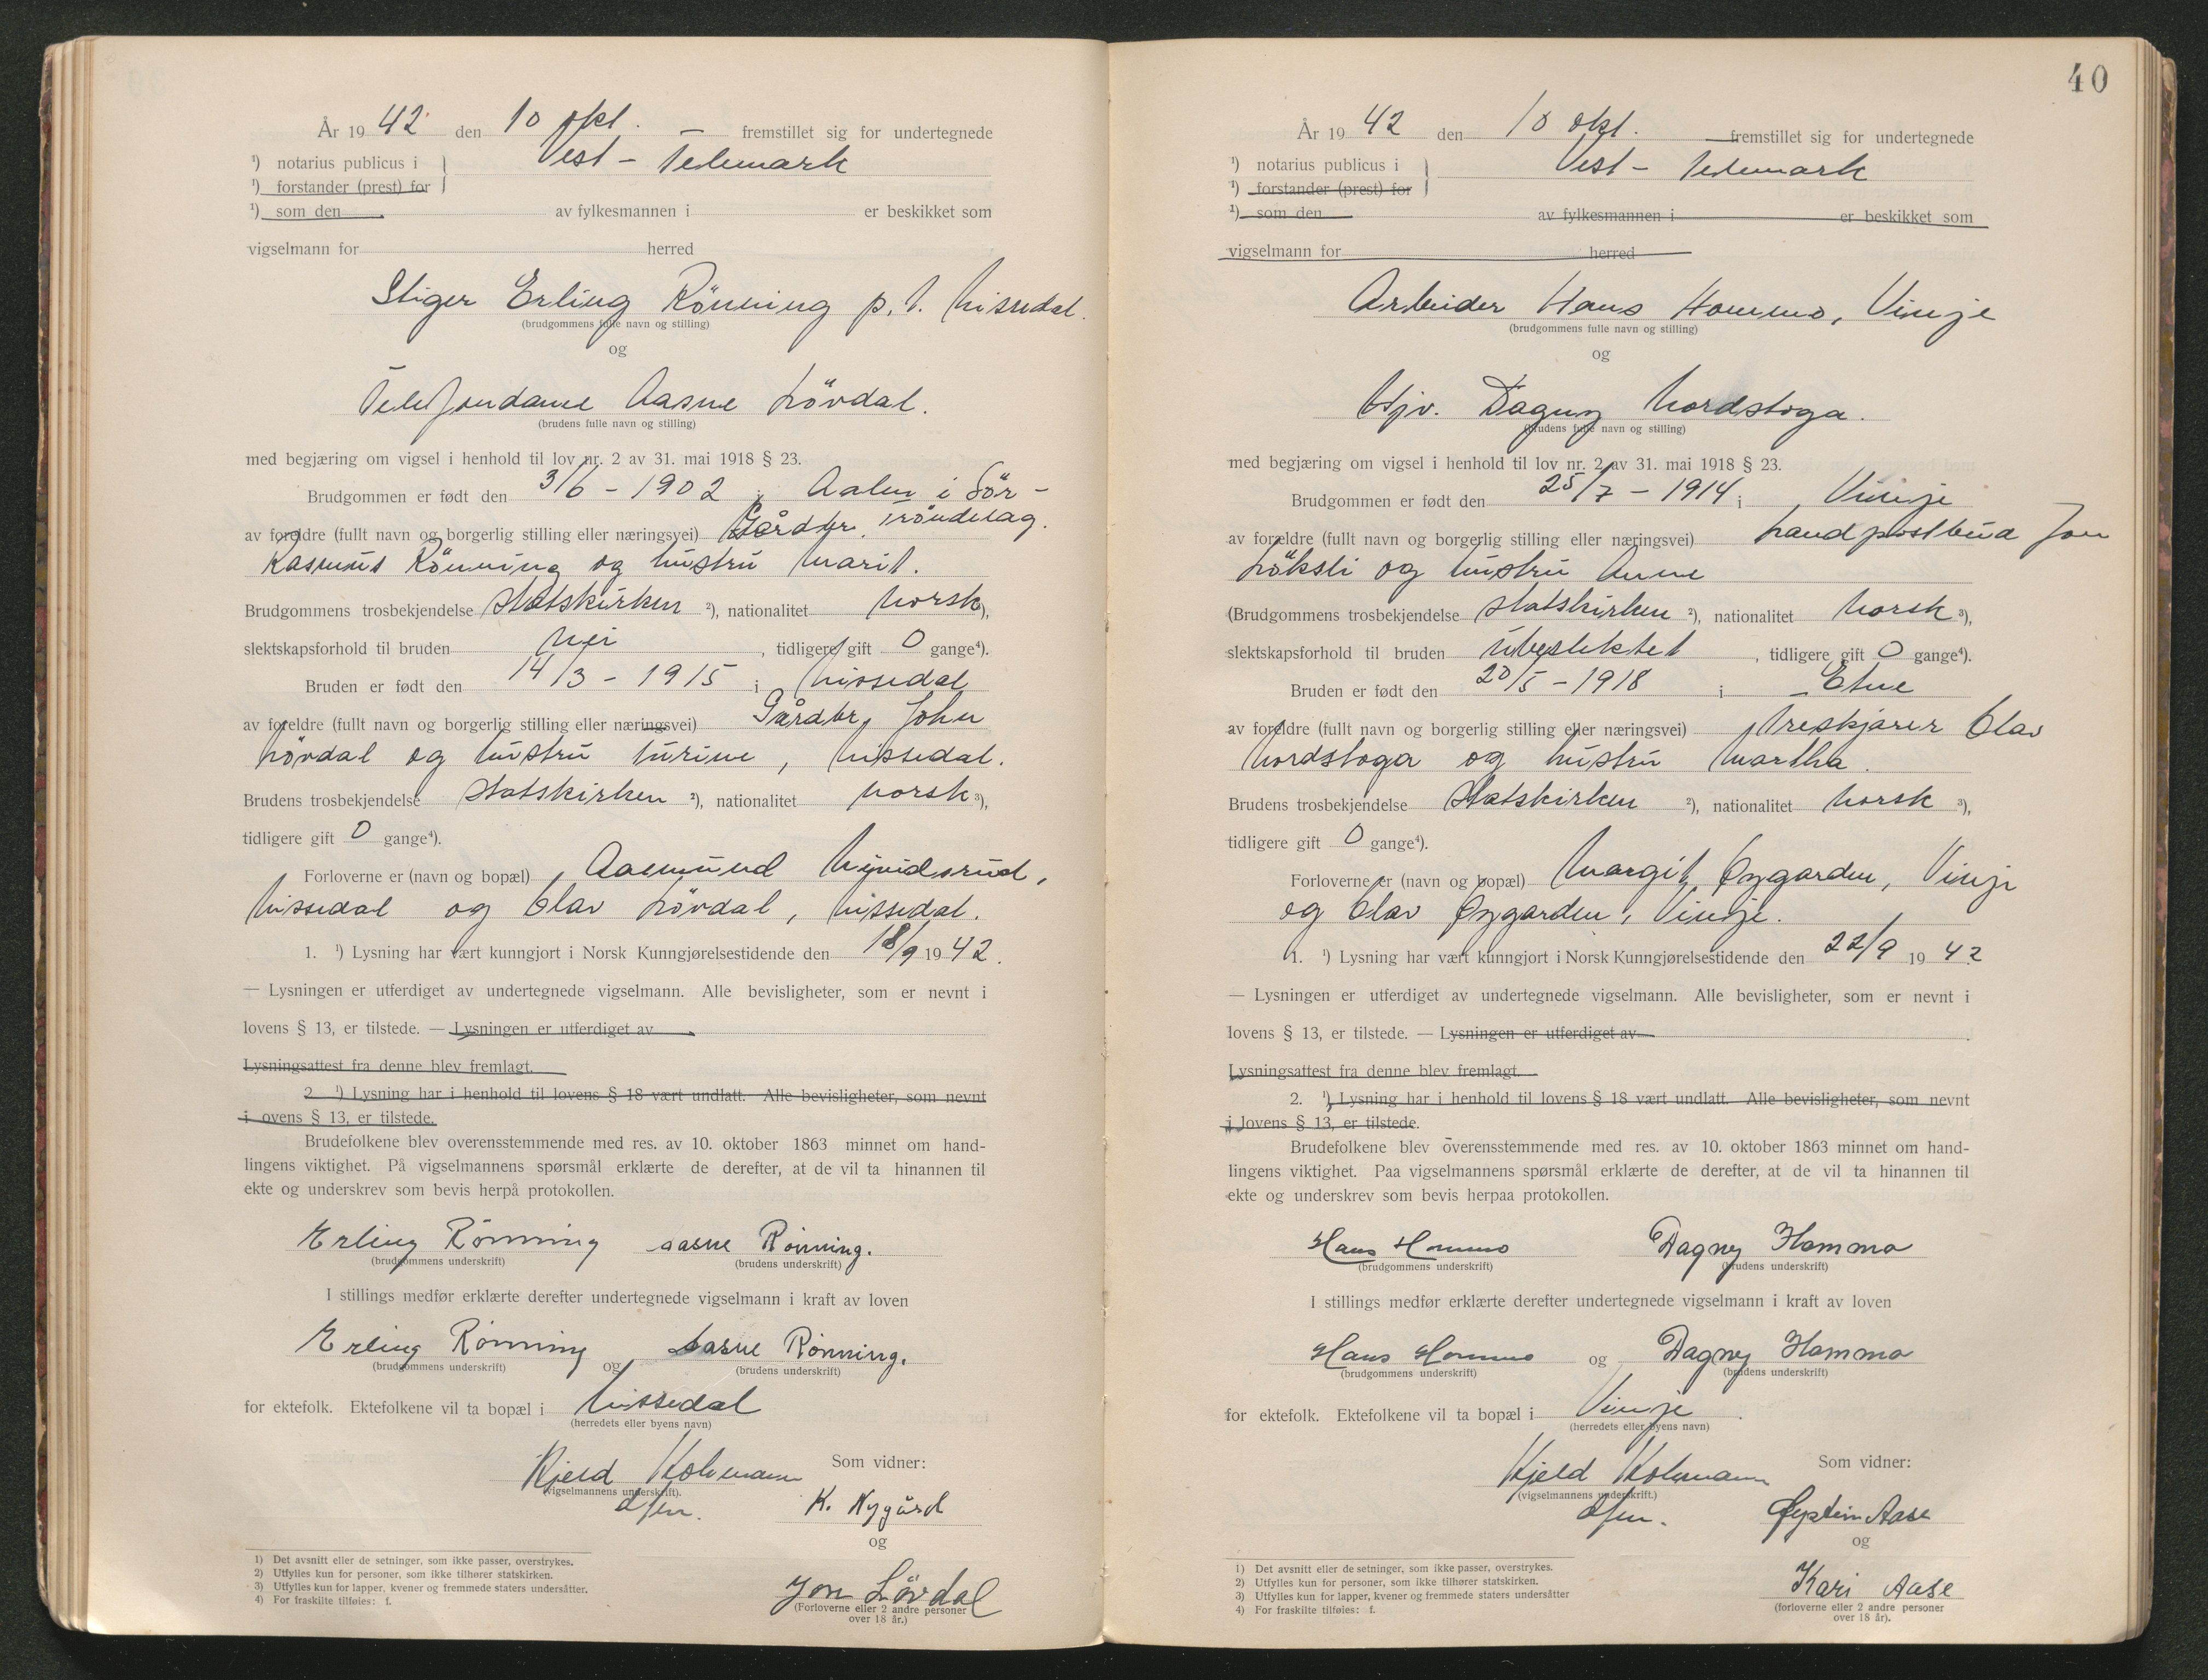 År 19 42 den 10 okt. — fremstillet sig for undertegnede
¹) notarius publicus i } Vest - Telemark
¹) forstander (prest) for
¹) som den av fylkesmannen i er beskikket som
vigselmann for herred
Stiger Erling Rönning p. t. Nissedal.
(brudgommens fulle navn og stilling)
og
Telefondame Aasne Lövdal.
(brudens fulle navn og stilling)
med begjæring om vigsel i henhold til lov nr. 2 av 31. mai 1918 § 23.
Brudgommen er født den 3/6 - 1902 i Aalen i Sör-
av foreldre (fullt navn og borgerlig stilling eller næringsvei) Gårdbr. Tröndelag.
Rasmus Rönning og hustru Marit.
Brudgommens trosbekjendelse statskirken ²), nationalitet norsk ),
slektskapsforhold til bruden Nei , tidligere gift 0 gange⁴).
Bruden er født den 14/3 - 1915 i Nissedal
av foreldre (fullt navn og borgerlig stilling eller næringsvei) Gårdbr. John
Lövdal og hustru Turine, Nissedal.
Brudens trosbekjendelse statskirken ²), nationalitet norsk ³),
tidligere gift 0 gange⁴).
Forloverne er (navn og bopæl) Aasmund
Nissedal og Olav Lövdal, Nissedal.
1. ¹) Lysning har vært kunngjort i Norsk Kunngjørelsestidende den 18/9 19 42.
— Lysningen er utferdiget av undertegnede vigselmann. Alle bevisligheter, som er nevnt i
lovens § 13, er tilstede. — Lysningen er utferdiget av
Lysningsattest fra denne blev fremlagt.
2. ¹) Lysning har i henhold til lovens § 18 vært undlatt. Alle bevisligheter, som nevnt
i ovens § 13, er tilstede.
Brudefolkene blev overensstemmende med res. av 10. oktober 1863 minnet om hand-
lingens viktighet. På vigselmannens spørsmål erklærte de derefter, at de vil ta hinannen til
ekte og underskrev som bevis herpå protokollen.
Erling Rönning Aasne Rönning.
(brudgommens underskrift) (brudens underskrift)
I stillings medfør erklærte derefter undertegnede vigselmann i kraft av loven
Erling Rönning og Aasne Rönning.
(brudgommens underskrift) (brudens underskrift)
for ektefolk. Ektefolkene vil ta bopæl i Nissedal
(herredets eller byens navn)
Kjeld Kolsmann Som vidner:
(vigselmannens underskrift).
dfm. K. Nygård
og
Jon Lövdal
(Forloverne eller 2 andre personer
over 18 år.)
1) Det avsnitt eller de setninger, som ikke passer, overstrykes.
2) Utfylles kun for personer, som ikke tilhører statskirken.
3) Utfylles kun for lapper, kvener og fremmede staters undersåtter.
4) For fraskilte tilføies: f.
40
År 19 42 den 10 okt. fremstillet sig for undertegnede
¹) notarius publicus i } Vest - Telemark
¹) forstander (prest) for
¹) som den av fylkesmannen i er beskikket som
vigselmann for herred
Arbeider Hans Hommo, Vinje
(brudgommens fulle navn og stilling)
og
Hjv. Dagny Nordstoga.
(brudens fulle navn og stilling)
med begjæring om vigsel i henhold til lov nr. 2 av 31. mai 1918 § 23.
Brudgommen er født den 25/7 - 1914 i Vinje
av foreldre (fullt navn og borgerlig stilling eller næringsvei) Landpostbud Jon
Löksli og hustru Anne
(Brudgommens trosbekjendelse statskirken ²), nationalitet norsk ³),
slektskapsforhold til bruden ubeslektet , tidligere gift 0 gange⁴).
Bruden er født den 20/5 - 1918 i Etne
av foreldre (fullt navn og borgerlig stilling eller næringsvei) treskjærer Olav
Nordstoga og hustru Martha.
Brudens trosbekjendelse statskirken ²), nationalitet norsk ³),
tidligere gift 0 gange⁴).
Forloverne er (navn og bopæl) Margit Øygarden, Vinje
og Olav Øygarden, Vinje.
1. ¹) Lysning har vært kunngjort i Norsk Kunngjørelsestidende den 22/9 19 42
— Lysningen er utferdiget av undertegnede vigselmann. Alle bevisligheter, som er nevnt i
lovens § 13, er tilstede. — Lysningen er utferdiget av
Lysningsattest fra denne blev fremlagt.
2. ¹) Lysning har i henhold til lovens § 18 vært undlatt. Alle bevisligheter, som nevnt
i lovens § 13, er tilstede.
Brudefolkene blev overensstemmende med res. av 10. oktober 1863 minnet om hand-
lingens viktighet. Paa vigselmannens spørsmål erklærte de derefter, at de vil ta hinannen til
ekte og underskrev som bevis herpaa protokollen.
Hans Hommo Dagny Hommo
(brudgommens underskrift) (brudens underskrift)
I stillings medfør erklærte derefter undertegnede vigselmann i kraft av loven
Hans Hommo og Dagny Hommo
(brudgommens underskrift) (brudens underskrift)
for ektefolk. Ektefolkene vil ta bopæl i Vinje
(herredets eller byens navn)
Kjeld Kolsmann Som vidner:
(vigselmannens underskrift.)
dfm. Øystein Aase
og
Kari Aase
(forloverne eller 2 andre personer
over 18 år).
1) Det avsnitt eller de setninger, som ikke passer, overstrykes.
2) Utfylles kun for personer, som ikke tilhører statskirken.
3) Utfylles kun for lapper, kvener og fremmede staters undersåtter
4) For fraskilte tilføies: f.